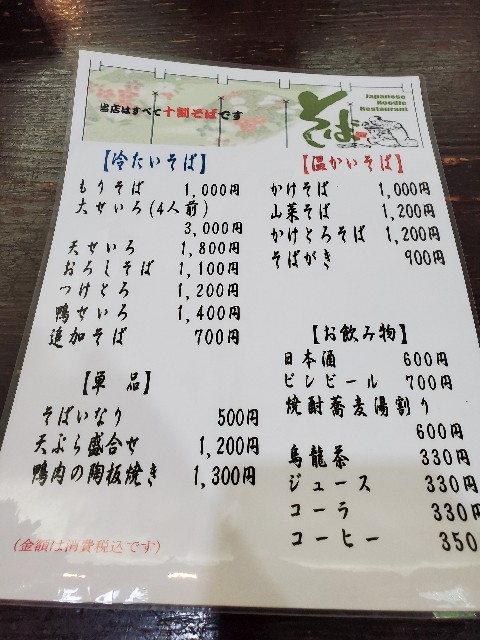 当店はすべて十割そばです
そば
Japanese
Noodle
Restaurant
【冷たいそば】
もりそば 1,000円
大せいろ(4人前)
3,000円
天せいろ 1,800円
おろしそば 1,100円
つけとろ 1,200円
鴨せいろ 1,400円
追加そば 700円
【単 品】
そばいなり 500円
天ぷら盛合せ 1,200円
鴨肉の陶板焼き 1,300円
(金額は消費税込です)
【温かいそば】
かけそば 1,000円
山菜そば 1,200円
かけとろそば 1,200円
そばがき 900円
【お飲み物】
日本酒 600円
ビンビール 700円
焼酎蕎麦湯割り
600円
烏龍茶 330円
ジュース 330円
コーラ 330円
コーヒー 350